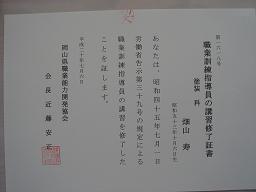 第一六一八号
職業訓練指導員の講習修了証書
塗装科
畑山寿
昭和五十三年十月六日生
あなたは、昭和四十五年七月一日
労働省告示第三十九号の規定による
職業訓練指導員の講習を修了した
ことを証します。
平成二十年七月六日
岡山県職業能力開発協会
会長近藤安正